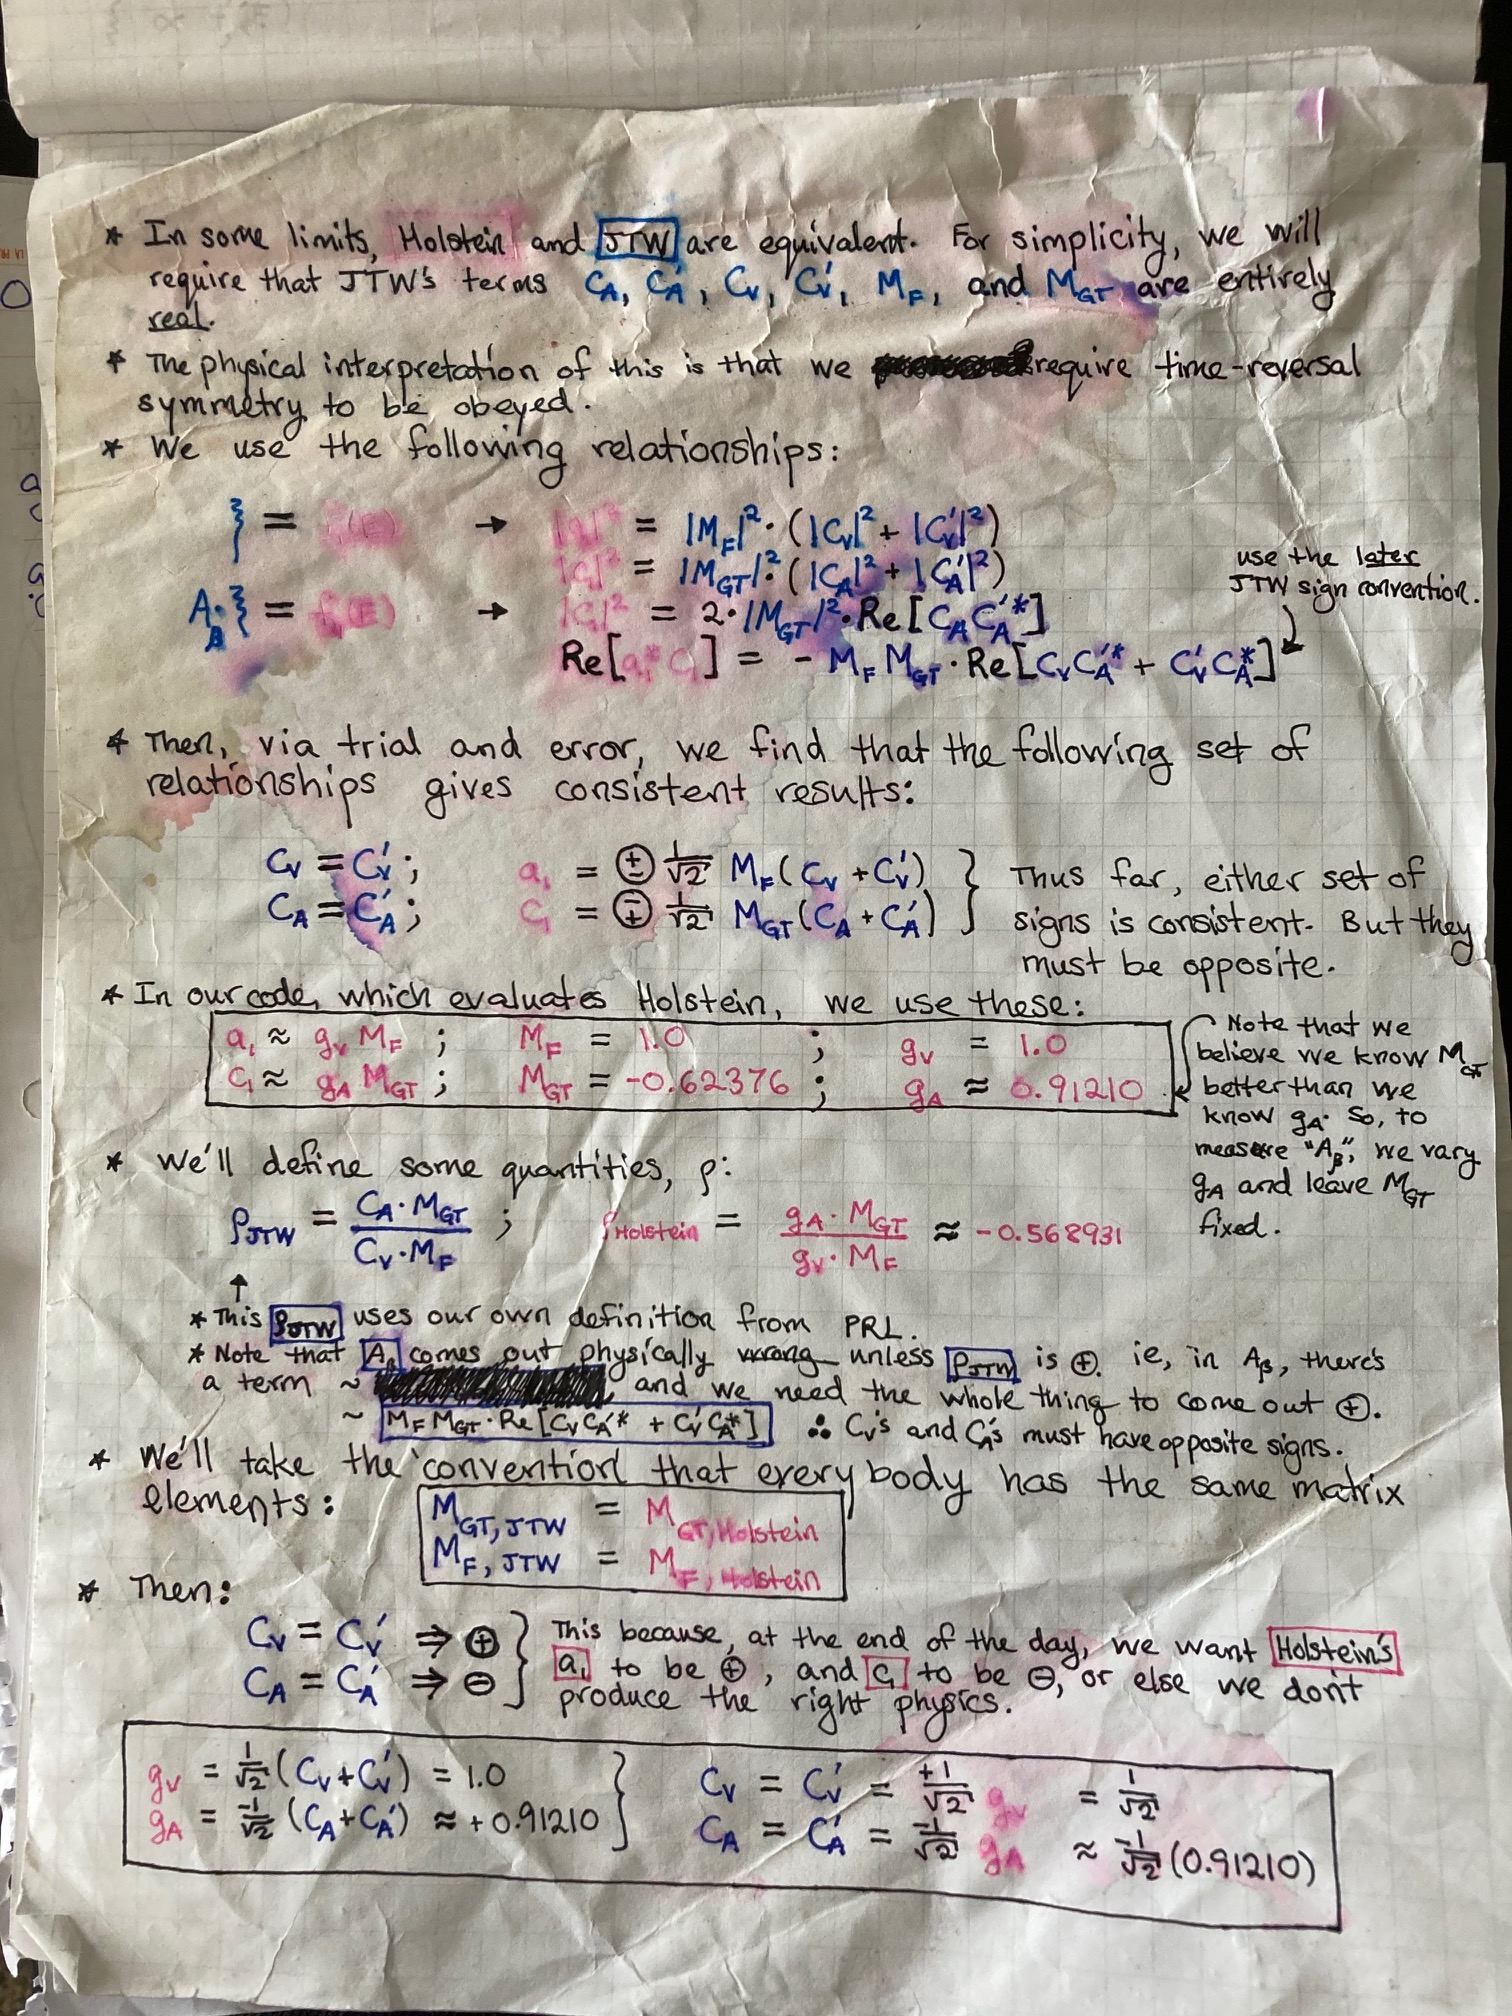 * In some limits, Holstein and JTW are equivalent. For simplicity, we will
require that JTW's terms C_A, C_A', C_V, C_V', M_F, and M_GT are entirely
real.
* The physical interpretation of this is that we require time-reversal
symmetry to be obeyed.
* We use the following relationships:
ξ = f_1(E) → |a_1|² = |M_F|²·(|C_V|² + |C_V'|²)
|c_1|² = |M_GT|²·(|C_A|² + |C_A'|²)
use the later
JTW sign convention.
A_β·ξ = f_4(E) → |c_1|² = 2·|M_GT|²·Re[C_A C_A'*]
Re[a_1* c_1] = - M_F M_GT·Re[C_V C_A'* + C_V' C_A*]
* Then, via trial and error, we find that the following set of
relationships gives consistent results:
C_V = C_V'; a_1 = ± 1/√2 M_F (C_V + C_V')
C_A = C_A'; c_1 = ∓ 1/√2 M_GT (C_A + C_A')
} Thus far, either set of
signs is consistent. But they
must be opposite.
* In our code, which evaluates Holstein, we use these:
a_1 ≈ g_V M_F ; M_F = 1.0 ; g_V = 1.0
c_1 ≈ g_A M_GT ; M_GT = -0.62376 ; g_A ≈ 0.91210
Note that we
believe we know M_GT
better than we
know g_A. So, to
measure "A_β", we vary
g_A and leave M_GT
fixed.
* We'll define some quantities, ρ:
ρ_JTW = C_A·M_GT / C_V·M_F ; ρ_Holstein = g_A·M_GT / g_V·M_F ≈ -0.568931
↑
* This ρ_JTW uses our own definition from PRL.
* Note that A_β comes out physically wrong unless ρ_JTW is ⊕. ie, in A_β, there's
a term ~ , and we need the whole thing to come out ⊕.
~ M_F M_GT·Re[C_V C_A'* + C_V' C_A*] ∴ C_V's and C_A's must have opposite signs.
* We'll take the convention that everybody has the same matrix
elements:
M_GT,JTW = M_GT,Holstein
M_F,JTW = M_F,Holstein
* Then:
C_V = C_V' ⇒ ⊕
C_A = C_A' ⇒ ⊖
} This because, at the end of the day, we want Holstein's
a_1 to be ⊕, and c_1 to be ⊖, or else we don't
produce the right physics.
g_V = 1/√2 (C_V + C_V') = 1.0 } C_V = C_V' = +1/√2 g_V = 1/√2
g_A = -1/√2 (C_A + C_A') ≈ +0.91210 } C_A = C_A' = -1/√2 g_A ≈ -1/√2 (0.91210)